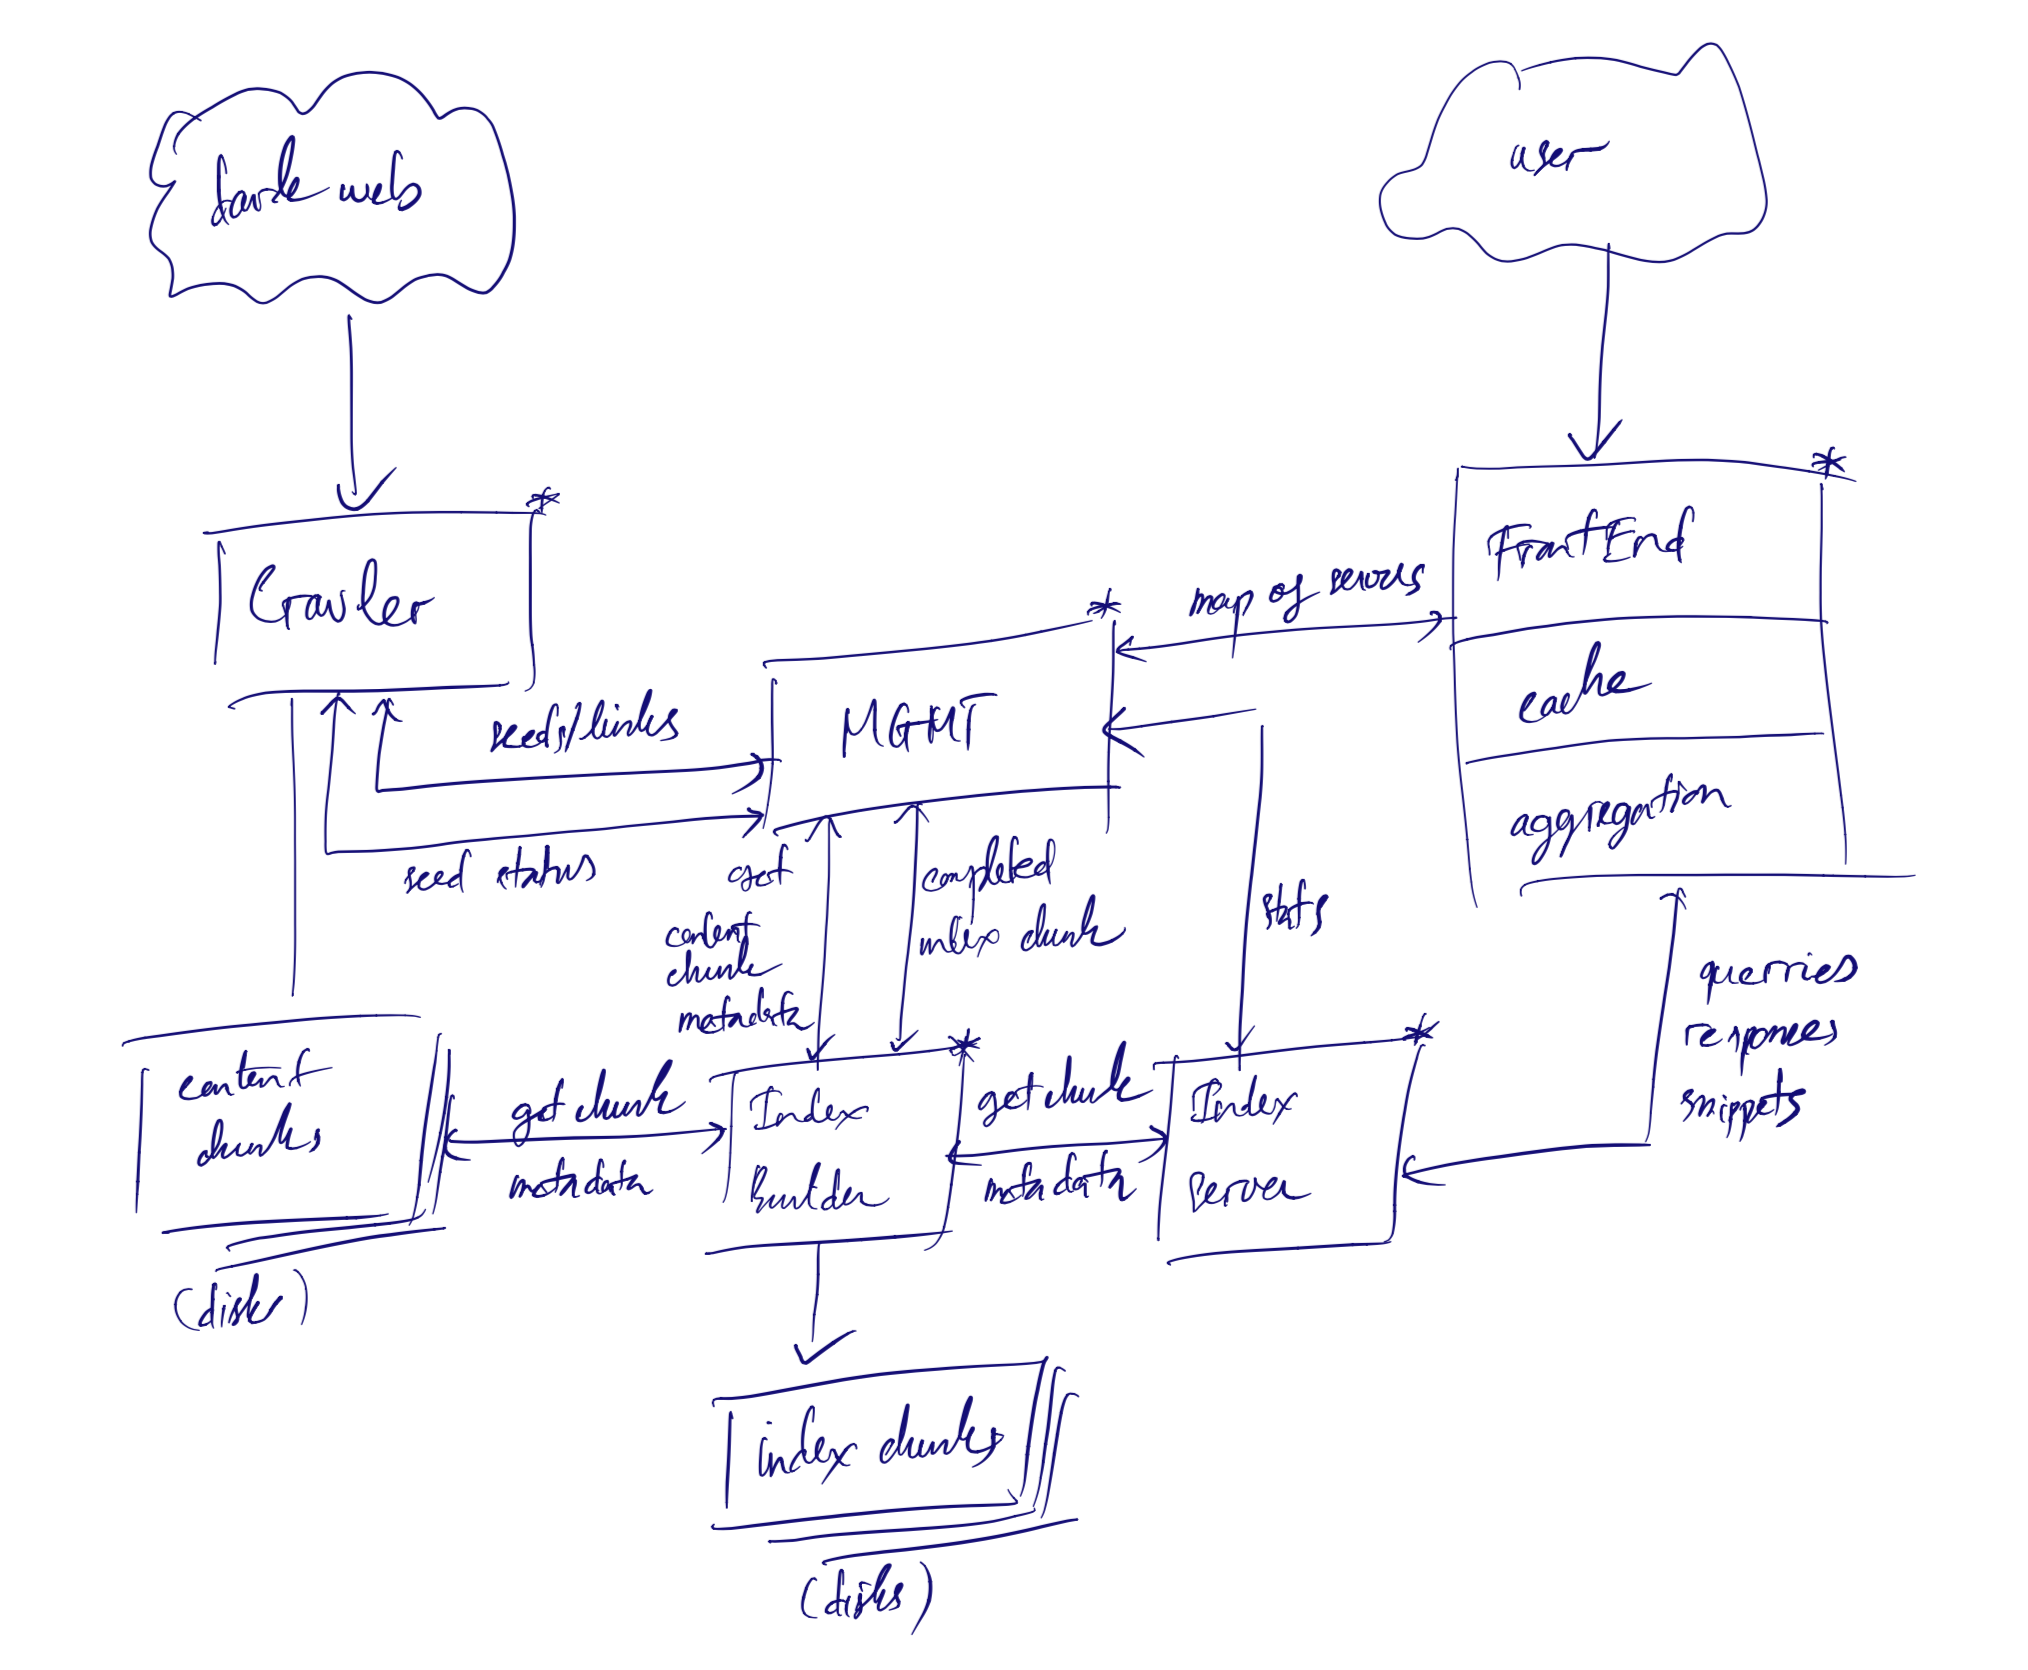 dark web
user
*
FrontEnd
*
Crawler
map of servers
*
cache
seeds/links
MGMT
aggregation
seed status
get
content
chunk
metadata
completed
index chunk
stats
querries
responses
snippets
content
chunks
(disk)
get chunk
metadata
*
Index
Builder
get chunk
metadata
*
Index
Server
index chunks
(disks)